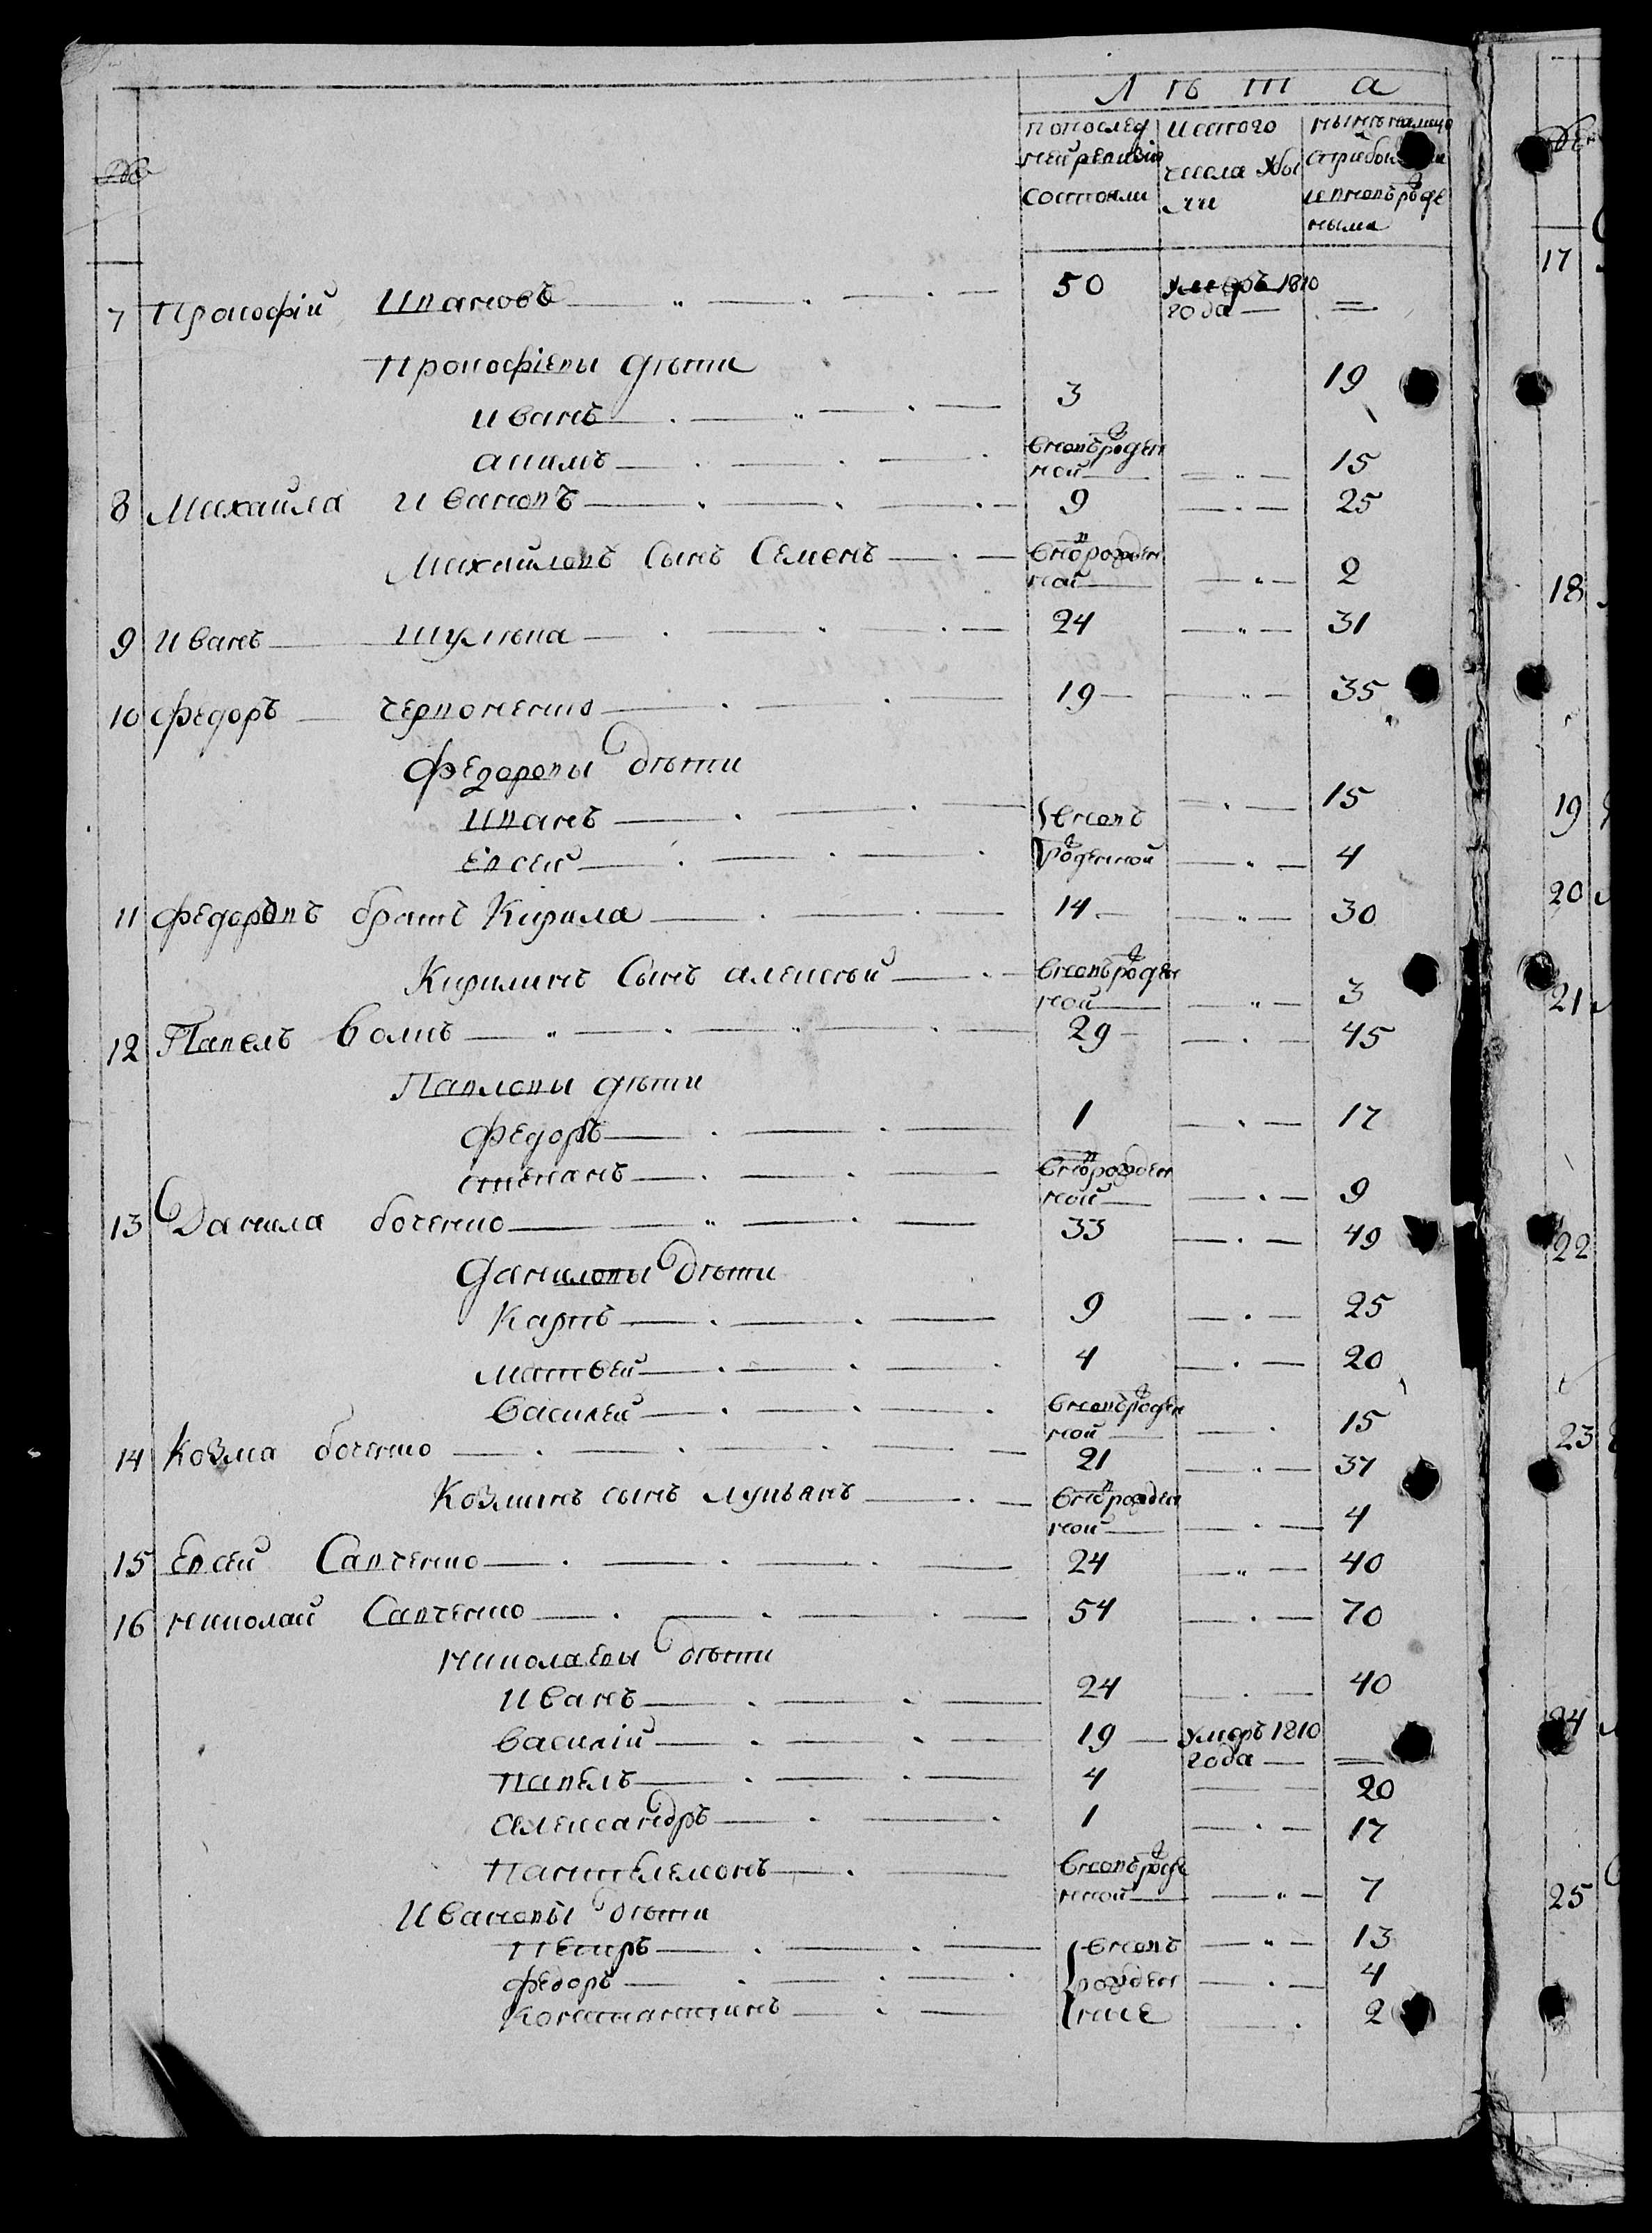 Л ѣ т а
попослед изтого нынѣналицо
ней ревизіи числа выбы
состояли ли вновърожде
ными
7 Прокофій Ивановъ 50 умеръ 1810
года
Прокофіевы дѣти
Иванъ 3 19
Акимъ вновърожден
ной 15
8 Михайла Ивановъ 9 25
Михайловъ Сынъ Семенъ вноврожден
ной 2
9 Иванъ Шулика 24 31
10 Федоръ 19 35
Федоровы дѣти
Иванъ вновъ 15
Евсей рожденной 4
11 Федоровъ братъ Кирила 14 30
Кирилинъ Сынъ Алексѣй вновърожден
ной 3
12 Павелъ Волкъ 29 45
Павловы дѣти
Федоръ 1 17
Степанъ вноврожден
ной 9
13 Данила боченко 33 49
Даниловы дѣти
Карпъ 9 25
Матвей 4 20
Василей вновърожден
ной 15
14 Козма боченко 21 37
Козминъ сынъ Лукьянъ вноврожден
ной 4
15 Евсей Савченко 24 40
16 Николай Савченко 54 70
Николаевы дѣти
Иванъ 24 40
Василій 19 умеръ 1810
года
Павелъ 4 20
Александръ 1 17
Пантелемонъ вновърожде
нной 7
Ивановы дѣти
Петръ вновъ 13
Федоръ рожден 4
Константинъ ние 2
17
18
19
20
21
22
23
24
25